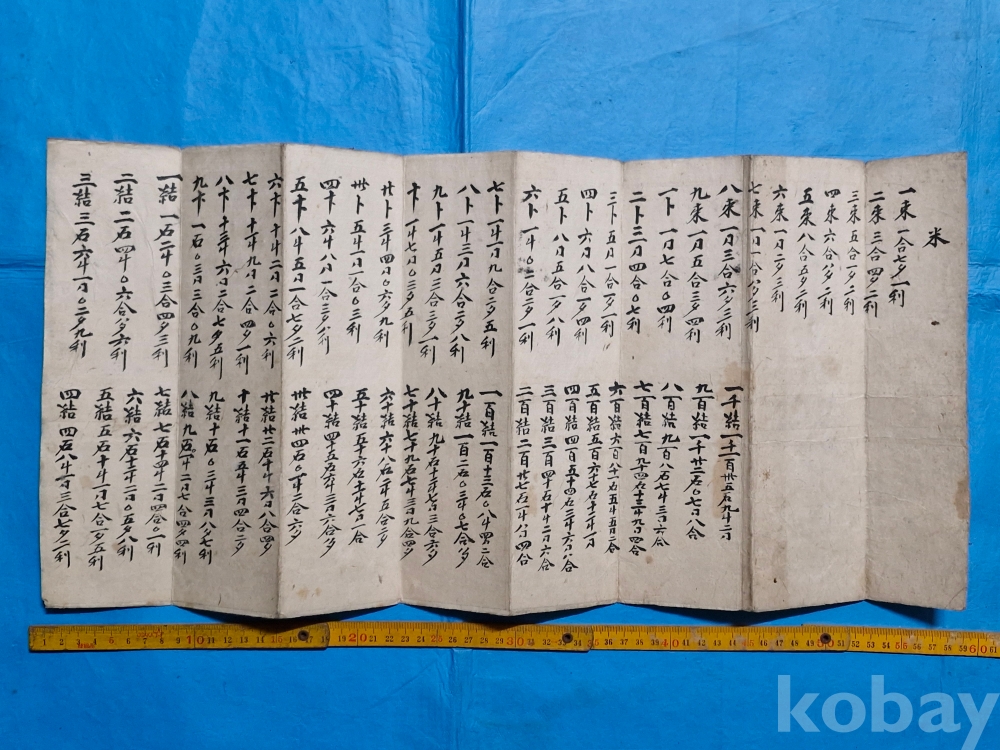 米
一束 一合七夕一利
二束 三合四夕二利
三束 五合一夕二利
四束 六合八夕二利
五束 八合五夕二利
六束 一刀二夕三利
七束 一刀一合八夕三利
八束 一刀三合六夕三利
九束 一刀五合三夕四利
一卜 一刀七合〇四利
二卜 三刀四合〇七利
三卜 五刀一合一夕一利
四卜 六刀八合一夕四利
五卜 八刀五合一夕八利
六卜 一斗〇二合二夕一利
七卜 一斗一刀九合二夕五利
八卜 一斗三刀六合二夕八利
九卜 一斗五刀三合三夕一利
十卜 一斗七刀〇三夕五利
廿卜 三斗四刀〇六夕九利
卅卜 五斗一刀一合〇三利
四十卜 六斗八刀一合三夕八利
五十卜 八斗五刀一合七夕二利
六十卜 十斗二刀二合〇六利
七十卜 十一斗九刀二合四夕一利
八十卜 十三斗六刀二合七夕五利
九十卜 一石〇三刀三合〇九利
一結 一石二斗〇三合四夕三利
二結 二石四斗〇六合八夕六利
三結 三石六斗一刀〇二夕九利
四結 四石八斗一刀三合七夕二利
五結 五石十斗一刀七合一夕五利
六結 六石十二斗二刀〇五夕八利
七結 七石十四斗二刀四合〇一利
八結 九石一斗二刀七合四夕四利
九結 十石〇三斗三刀八夕七利
十結 十一石五斗三刀四合三夕
廿結 廿二石十斗六刀八合四夕
卅結 卅四石〇一斗二合六夕
四十結 四十五石六斗三刀六合八夕
五十結 五十六石十一斗七刀一合
六十結 六十八石二斗五合二夕
七十結 七十九石七斗三刀九合四夕
八十結 九十石十二斗七刀三合六夕
九十結 一百二石〇三斗〇七合八夕
一百結 一百十三石〇八斗四刀二合
二百結 二百廿七石一斗八刀四合
三百結 三百四十石十斗二刀六合
四百結 四百五十四石三斗六刀八合
五百結 五百六十七石十二斗一刀
六百結 六百八十一石五斗五刀二合
七百結 七百九十四石十三斗九刀四合
八百結 九百八石七斗三刀六合
九百結 一千廿二石〇七刀八合
一千結 一千一百卅五石九斗二刀
kobay